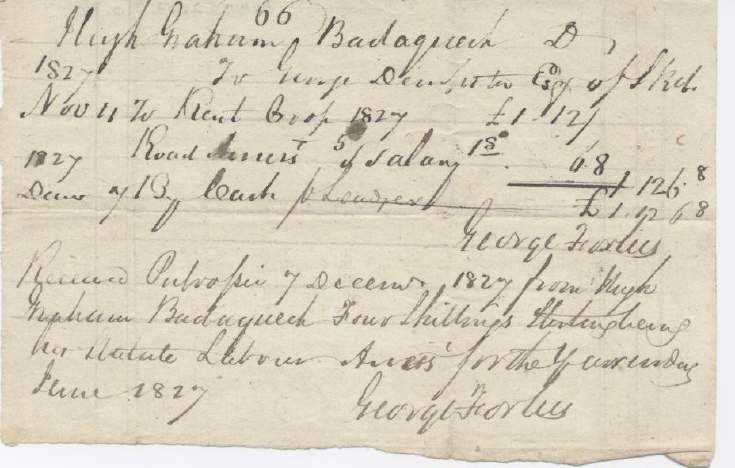 66
Hugh Graham, Badaguech Dr
1827 To George Dempster Esqr. of Skibo
Nov 11 To Rent Crop 1827 £1. 12/
Road Assesst 5 Salary 1s/ 6.8
1827 1 12 6. 8
Decr 7 By Cash £ 1. 12 6 8
George Forbes
Received Pulrossie 7 December 1827 from Hugh
Graham Badaguech Four Shillings Sterling being
his Statute Labour Assest for the year ending
June 1827
George Forbes